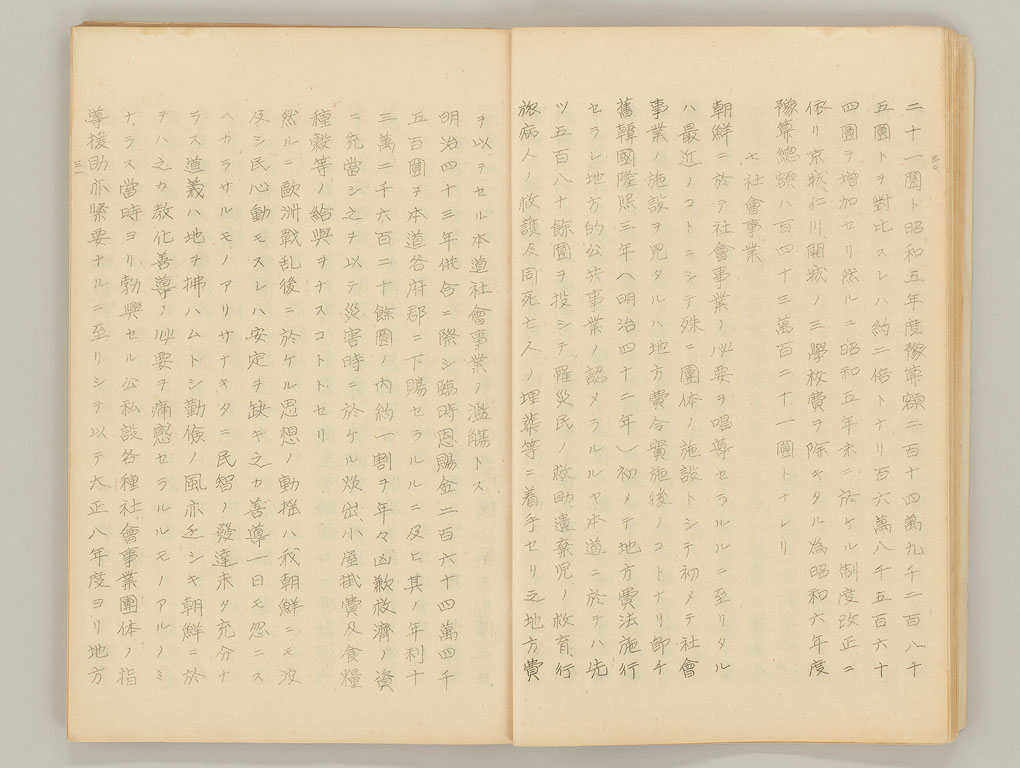 三〇
二十一圓ト昭和五年度豫算額二百十四萬九千二百八十
五圓トヲ對比スレハ約二倍トナリ百六萬八千五百六十
四圓ヲ增加セリ然ルニ昭和五年末ニ於ケル制度改正ニ
依リ京城仁川開城ノ三學校費ヲ除キタル為昭和六年度
豫算總額ハ百四十三萬百二十一圓トナレリ
七 社會事業
朝鮮ニ於テ社會事業ノ必要ヲ唱導セラルルニ至リタル
ハ最近ノコトニシテ殊ニ團体ノ施設トシテ初メテ社會
事業ノ施設ヲ見タルハ地方費令實施後ノコトナリ卽チ
舊韓國隆熙三年（明治四十二年）初メテ地方費法施行
セラレ地方的公共事業ノ認メラルルヤ本道ニ於テハ先
ツ五百八十餘圓ヲ投シテ罹災民ノ救助遺棄児ノ救育行
旅病人ノ救護及同死亡人ノ埋葬等ニ着手セリ之地方費
ヲ以テセル本道社會事業ノ濫觴トス
明治四十三年併合ニ際シ臨時恩賜金二百六十四萬四千
五百圓ヲ本道各府郡ニ下賜セラルルニ及ヒ其ノ年利十
三萬二千六百二十餘圓ノ内約一割ヲ年々凶歉救濟ノ資
ニ充當シ之ヲ以テ災害時ニ於ケル炊出小屋掛費及食糧
種穀等ノ給與ヲナスコトトセリ
然ルニ歐洲戰乱後ニ於ケル思想ノ動揺ハ我朝鮮ニモ波
及シ民心動モスレハ安定ヲ缺キ之カ善導一日モ忽ニス
ヘカラサルモノアリサナキタニ民智ノ發達未タ充分ナ
ラス道義ハ地ヲ拂ハムトシ勤儉ノ風亦乏シキ朝鮮ニ於
テハ之カ教化善導ノ必要ヲ痛感セラルルモノアルノミ
ナラス當時ヨリ勃興セル公私設各種社會事業團体ノ指
導援助亦緊要ナルニ至リシヲ以テ大正八年度ヨリ地方
三一